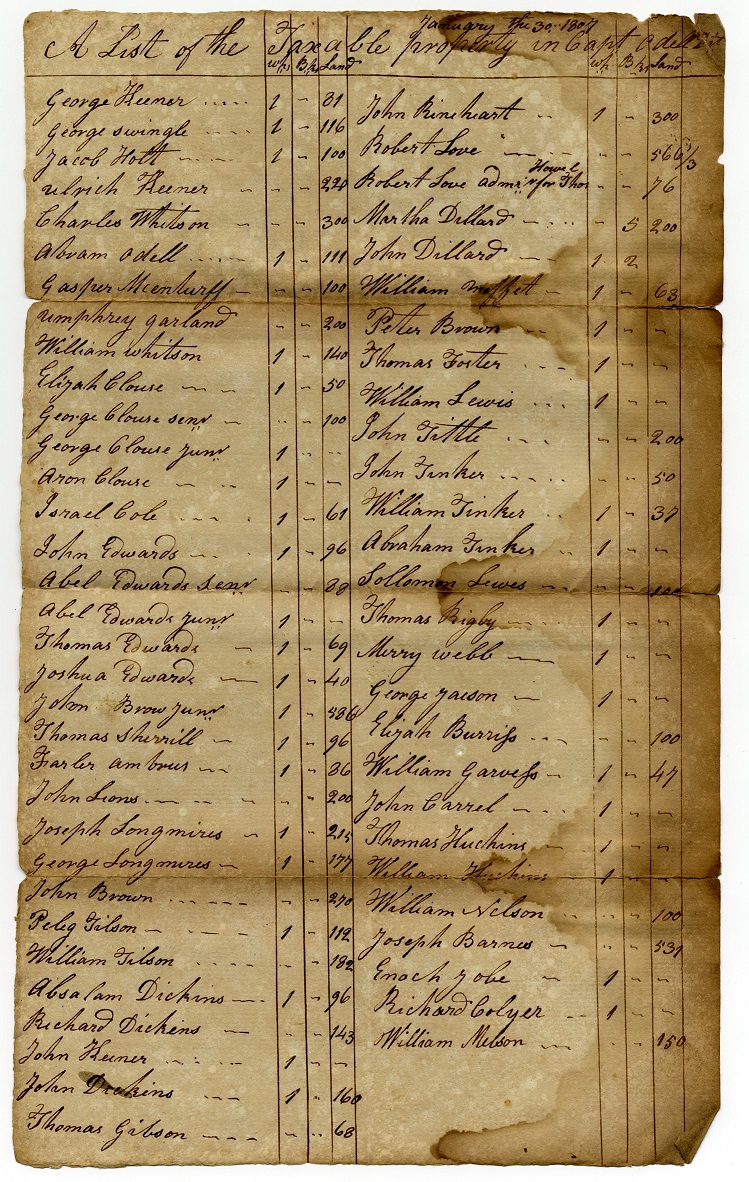 January the 30th 1807
A List of the Taxable property in Capt Odells
wh Bk Land wh Bk Land
George Keener 1 - 81
George Swingle 1 - 116
Jacob Holt 1 - 100
Ulrich Keener - - 220
Charles Whitson - - 300
Abram Odell 1 - 111
Gasper Mcenturff - - 100
Umphrey Garland - - 200
William Whitson 1 - 140
Elizah Clouse 1 - 50
George Clouse senr - - 100
George Clouse Junr 1 - -
Aron Clouse 1 -
Israel Cole 1 - 61
John Edwards 1 - 96
Abel Edwards senr - - 88
Abel Edwards Junr 1 - -
Thomas Edwards 1 - 69
Joshua Edwards 1 - 40
John Brow Junr 1 - 586
Thomas Sherrill 1 - 96
Farler ambrus 1 - 86
John Lions - - 200
Joseph Longmires 1 - 215
George Longmires 1 - 177
John Brown - - 270
Peleg Gilson 1 - 112
William Gilson - - 182
Absalam Dickins 1 - 96
Richard Dickens - - 143
John Keener 1 - -
John Dickins 1 - 160
Thomas Gibson - - 68
John Rineheart 1 - 300
Robert Love - - 566 1/3
Robert Love admr for Thos Howel - - 76
Martha Dillard - 5 200
John Dillard 1 2
William Moffet 1 - 63
Peter Brown 1 - -
Thomas Foster 1 - -
William Lewis 1 - -
John Tittle - - 200
John Tinker - - 50
William Tinker 1 - 37
Abraham Tinker 1 - -
Sollomon Lewes - - 100
Thomas Rigby 1 - -
Merry Webb 1 - -
George Jaeson 1 - -
Elijah Burriss - - 100
William Garvess 1 - 47
John Carrel 1 - -
Thomas Huchins 1 - -
William Huchins 1 - -
William Nelson - - 100
Joseph Barnes - - 531
Enoch Jobe 1 - -
Richard Colyer 1 - -
William Melson - - 150